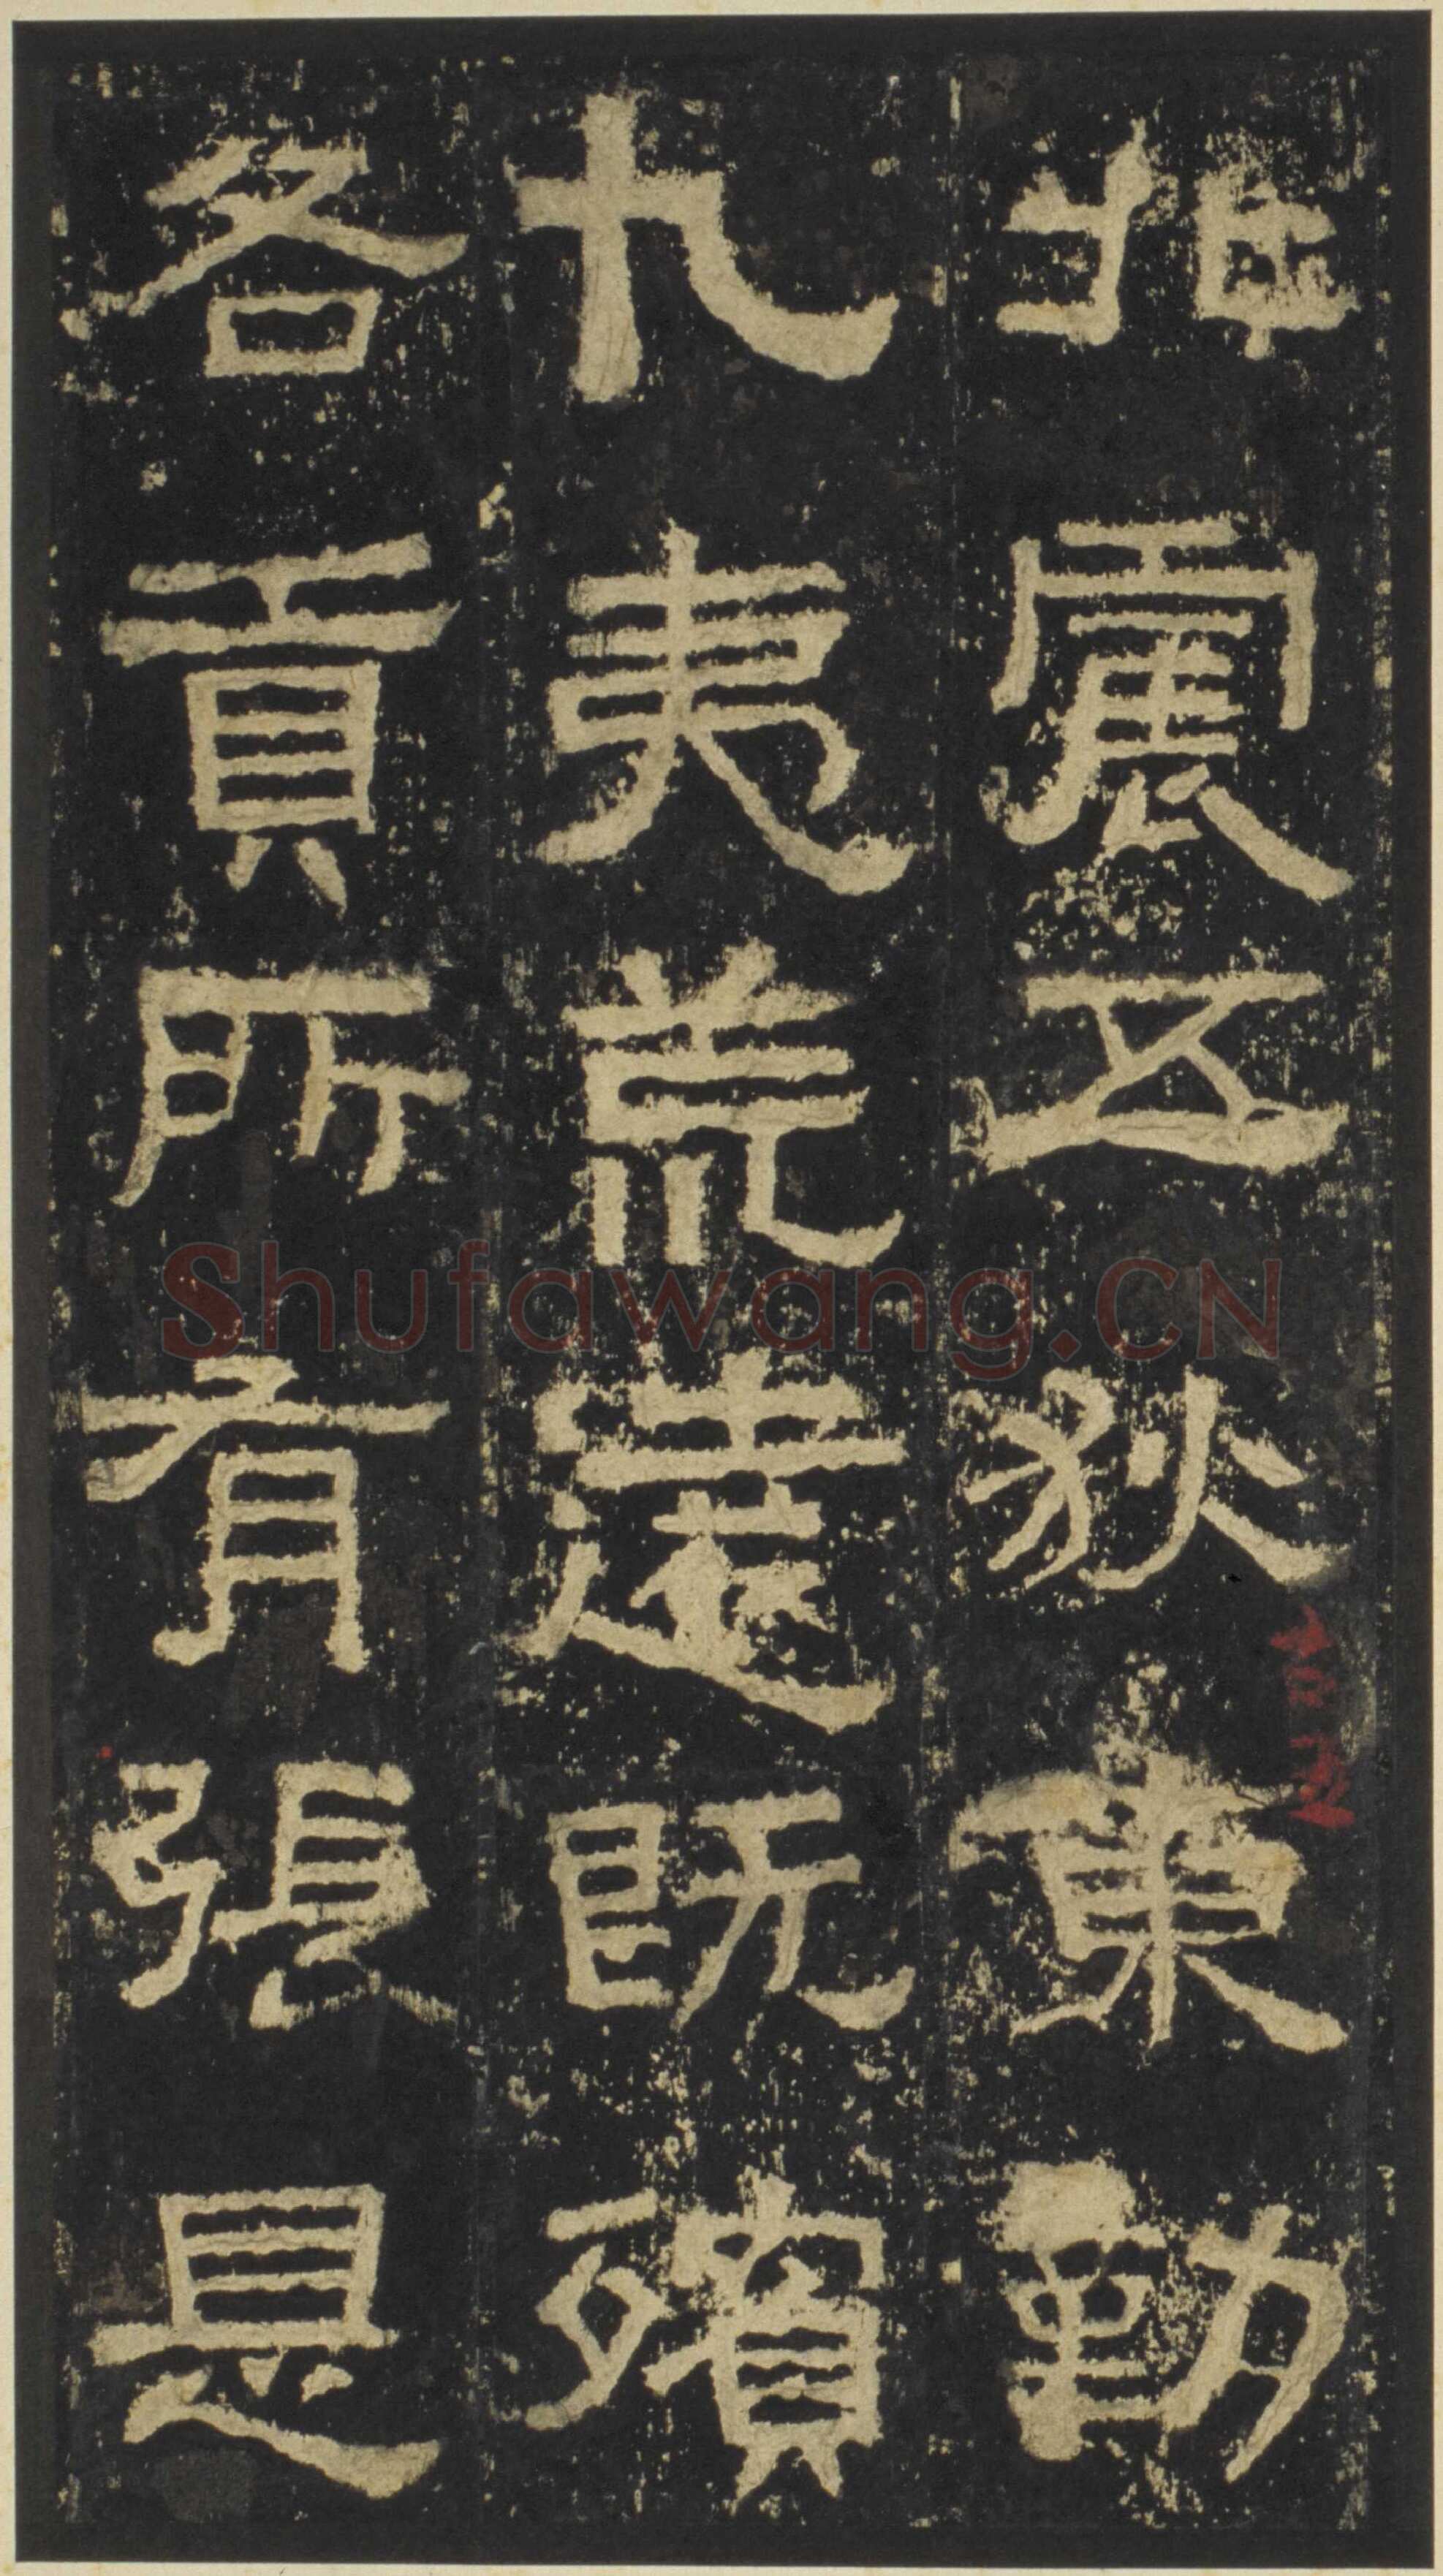 北震五狄東勤
九夷荒遠既殯
各貢所有張是
Shufawang.CN